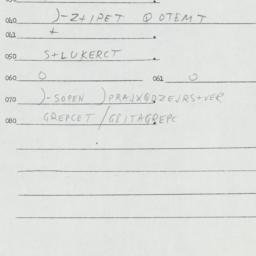 040 )-Z+IPET QOTEMT
041 +
050 S+LUKERCT
060 O 061 O
070 )-SOPEN )PRAJX@DZEJRS+VER
080 GREPCET/GBITAGREPC